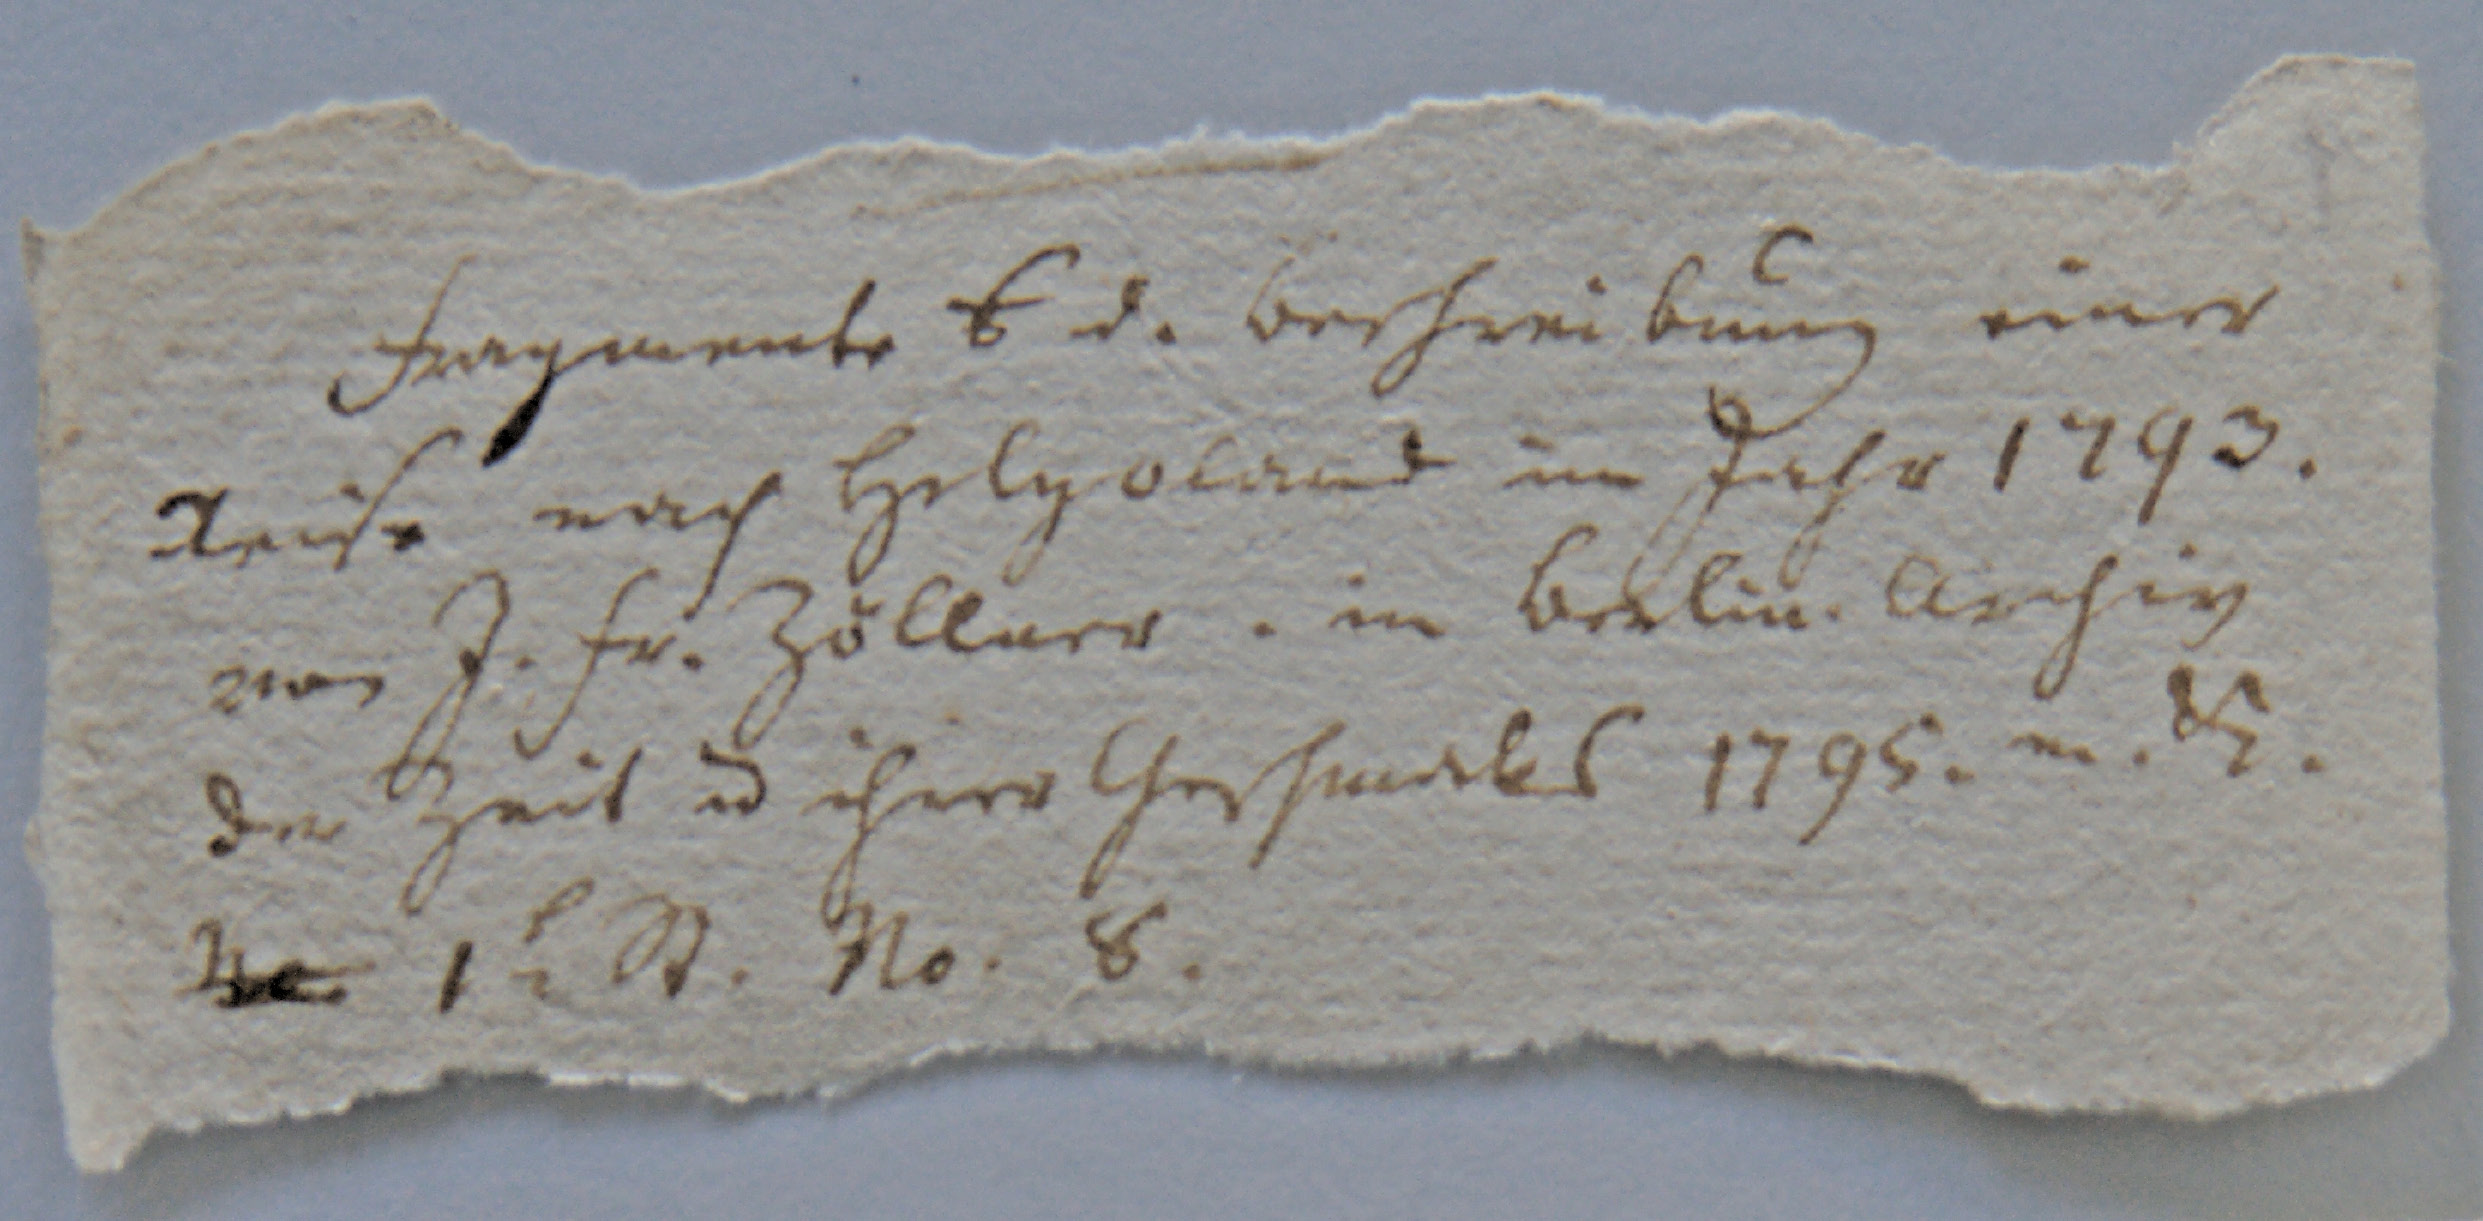 Fragmente d. Beschreibung einer
Reise nach Helgoland im Jahr 1793.
von J. Fr. Zöllner. im Berlin. Archiv
der Zeit u ihres Geschmaks 1795. m.
1 St. No. 8.